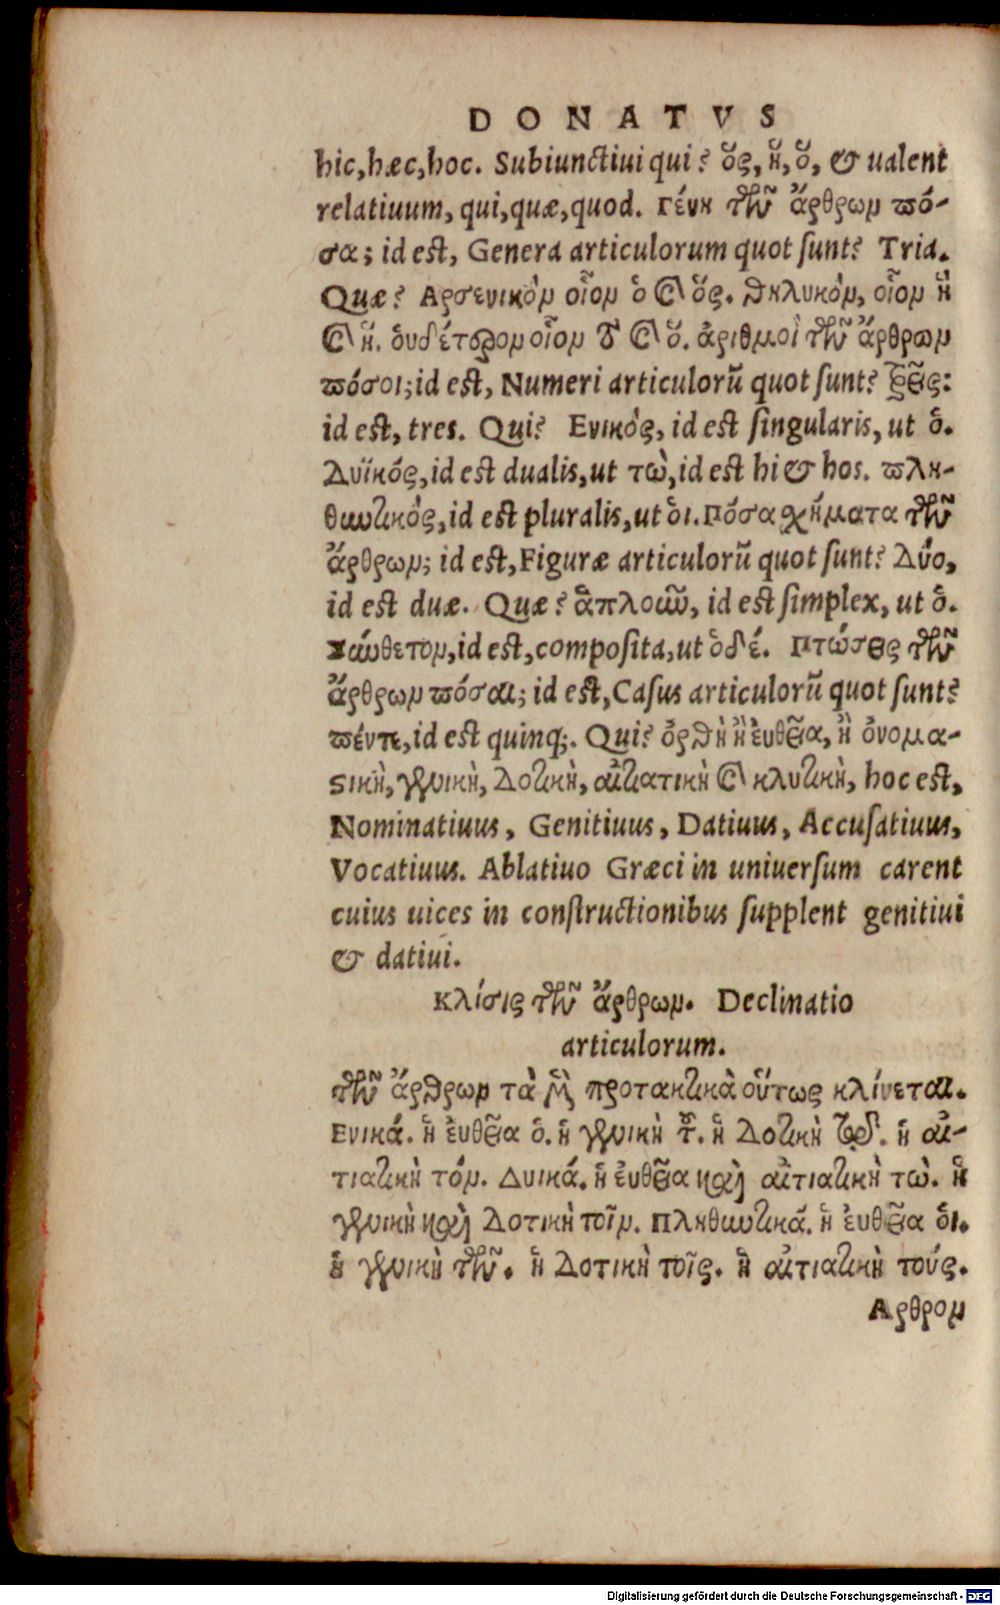 DONATVS
hic, hæc, hoc. Subiunctiui qui? ὅς, ἥ, ὅ, & ualent
relatiuum, qui, quæ, quod. Γένη τῶν ἄρθρων πό-
σα; id est, Genera articulorum quot sunt? Tria.
Quæ? Αρσενικὸν οἷον ὁ καὶ ὅς. θηλυκὸν, οἷον ἡ
καὶ ἥ. ὀυδέτερον οἷον τὸ καὶ ὅ. ἀριθμοὶ τῶν ἄρθρων
πόσοι; id est, Numeri articulorũ quot sunt? τρεῖς:
id est, tres. Qui? Ενικὸς, id est singularis, ut ὁ.
Δυϊκὸς, id est dualis, ut τὼ, id est hi & hos. πλη-
θωτικὸς, id est pluralis, ut ὁι. Πόσα χήματα τῶν
ἄρθρων; id est, Figuræ articulorũ quot sunt? Δύο,
id est duæ. Quæ? ἁπλοῦν, id est simplex, ut ὁ.
Σύνθετον, id est, composita, ut ὁδέ. Πτώσεις τῶν
ἄρθρων πόσαι; id est, Casus articulorũ quot sunt?
πέντε, id est quinq;. Qui? ὀρθὴ ἢ ἐυθεῖα, ἢ ὀνομα-
στικὴ, γενικὴ, Δοτικὴ, αἰτιατικὴ καὶ κλητικὴ, hoc est,
Nominatiuus, Genitiuus, Datiuus, Accusatiuus,
Vocatiuus. Ablatiuo Græci in uniuersum carent
cuius uices in constructionibus supplent genitiui
& datiui.
Κλίσις τῶν ἄρθρων. Declinatio
articulorum.
τῶν ἄρθρων τὰ μὲν προτακτικὰ οὕτως κλίνεται.
Ενικά. ἡ ἐυθεῖα ὁ. ἡ γενικὴ τοῦ. ἡ Δοτικὴ τῷ δ. ἡ αἰ-
τιατικὴ τόν. Δυικά. ἡ ἐυθεῖα καὶ αἰτιατικὴ τὼ. ἡ
γενικὴ καὶ Δοτικὴ τοῖν. Πληθωτικά. ἡ ἐυθεῖα ὁι.
ἡ γενικὴ τῶν. ἡ Δοτικὴ τοῖς. ἡ αἰτιατικὴ τούς.
Αρθρον
Digitalisierung gefördert durch die Deutsche Forschungsgemeinschaft - DFG